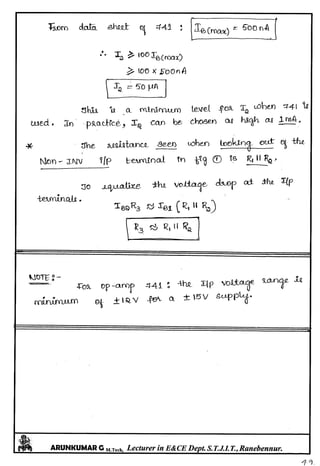 From data sheet of 741 : I_B(max) = 500nA
∴ I_2 ≥ 100 I_B(max)
≥ 100 x 500nA
I_2 = 50 μA
This is a minimum level for I_2 when 741 is
used. In practice, I_2 can be chosen as high as 1mA.
* The resistance seen when looking out of the
Non-INV i/p terminal in fig ① is R_1 || R_2.
To equalize the voltage drop at the I/p
terminals.
I_B2 R_3 ≈ I_B1 (R_1 || R_2)
R_3 ≈ R_1 || R_2
NOTE :-
For op-amp 741 : the I/p voltage range is
minimum of ±12V for a ±15V supply.
ARUNKUMAR G M.Tech, Lecturer in E&CE Dept. S.T.J.I.T., Ranebennur.